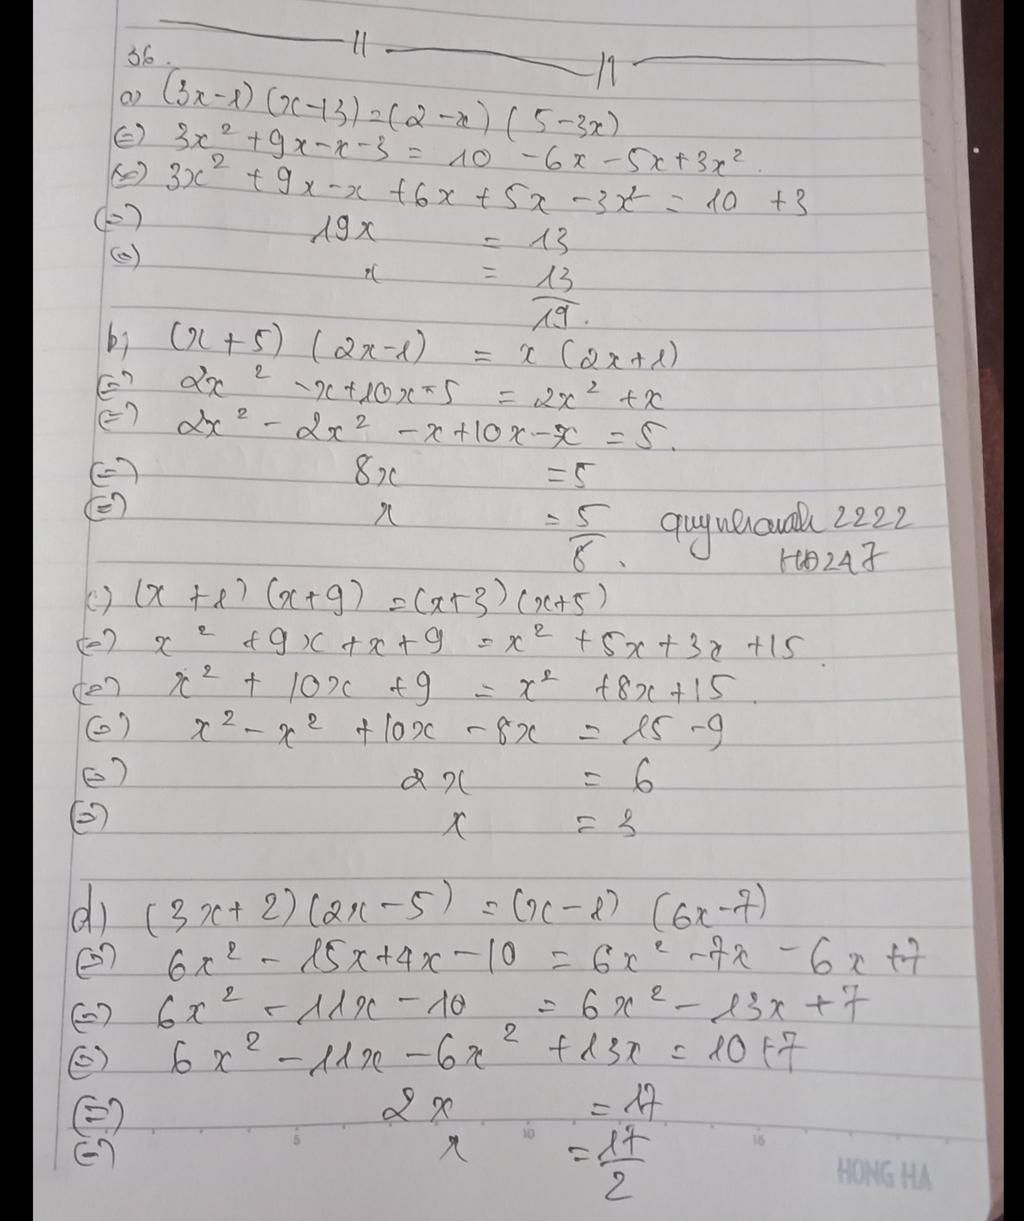 36.
a) (3x-1)(x+3)=(2-x)(5-3x)
(=) 3x² +9x-x-3 = 10 -6x-5x+3x².
(=) 3x² +9x-x +6x +5x -3x² = 10 +3
(=) 19x = 13
(=) x = 13/19.
b, (x+5) (2x-1) = x (2x+1)
(=) 2x² -x+10x-5 = 2x² +x
(=) 2x² - 2x² -x+10x-x = 5.
(=) 8x = 5
(=) x = 5/8.
quynhanh 2222
HD247
c) (x +1) (x+9) =(x+3) (x+5)
(=) x² +9x +x+9 = x² +5x+3x +15.
(=) x² + 10x +9 = x² +8x+15.
(=) x² - x² +10x -8x = 15 -9
(=) 2x = 6
(=) x = 3
d) (3x+2)(2x-5) =(x-1) (6x-7)
(=) 6x² - 15x+4x-10 = 6x² -7x - 6x +7
(=) 6x² -11x -10 = 6x² - 13x +7
(=) 6x² -11x -6x² +13x = 10+7
(=) 2x = 17
(=) x = 17/2
5 10 15
HONG HA